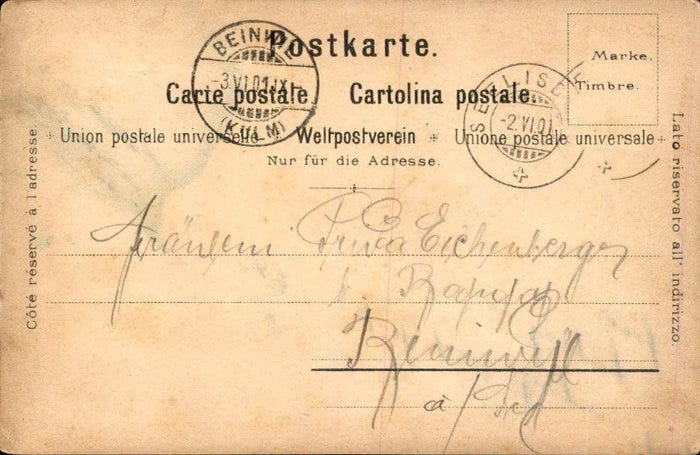 Postkarte.
Carte postale. Cartolina postale.
Union postale universelle Weltpostverein Unione postale universale
Nur für die Adresse.
Côté réservé à l'adresse.
Lato riservato all' indirizzo.
Marke.
Timbre.
BEINWIL
-3.VI.01.IX-
(KULM)
-2.VI.01
Eichenberger
Beinwyl